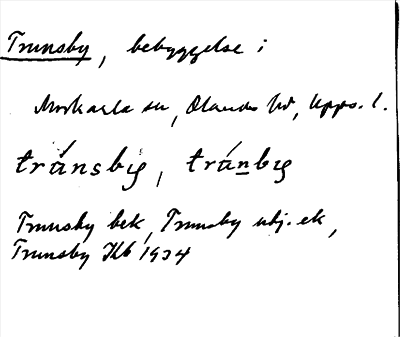 Trunsby, bebyggelse i
Morkarla sn, Olands hd, Upps. l.
tránsby, tránby
Trunsby bek, Trunsby utj. ek,
Trunsby Jkb 1934